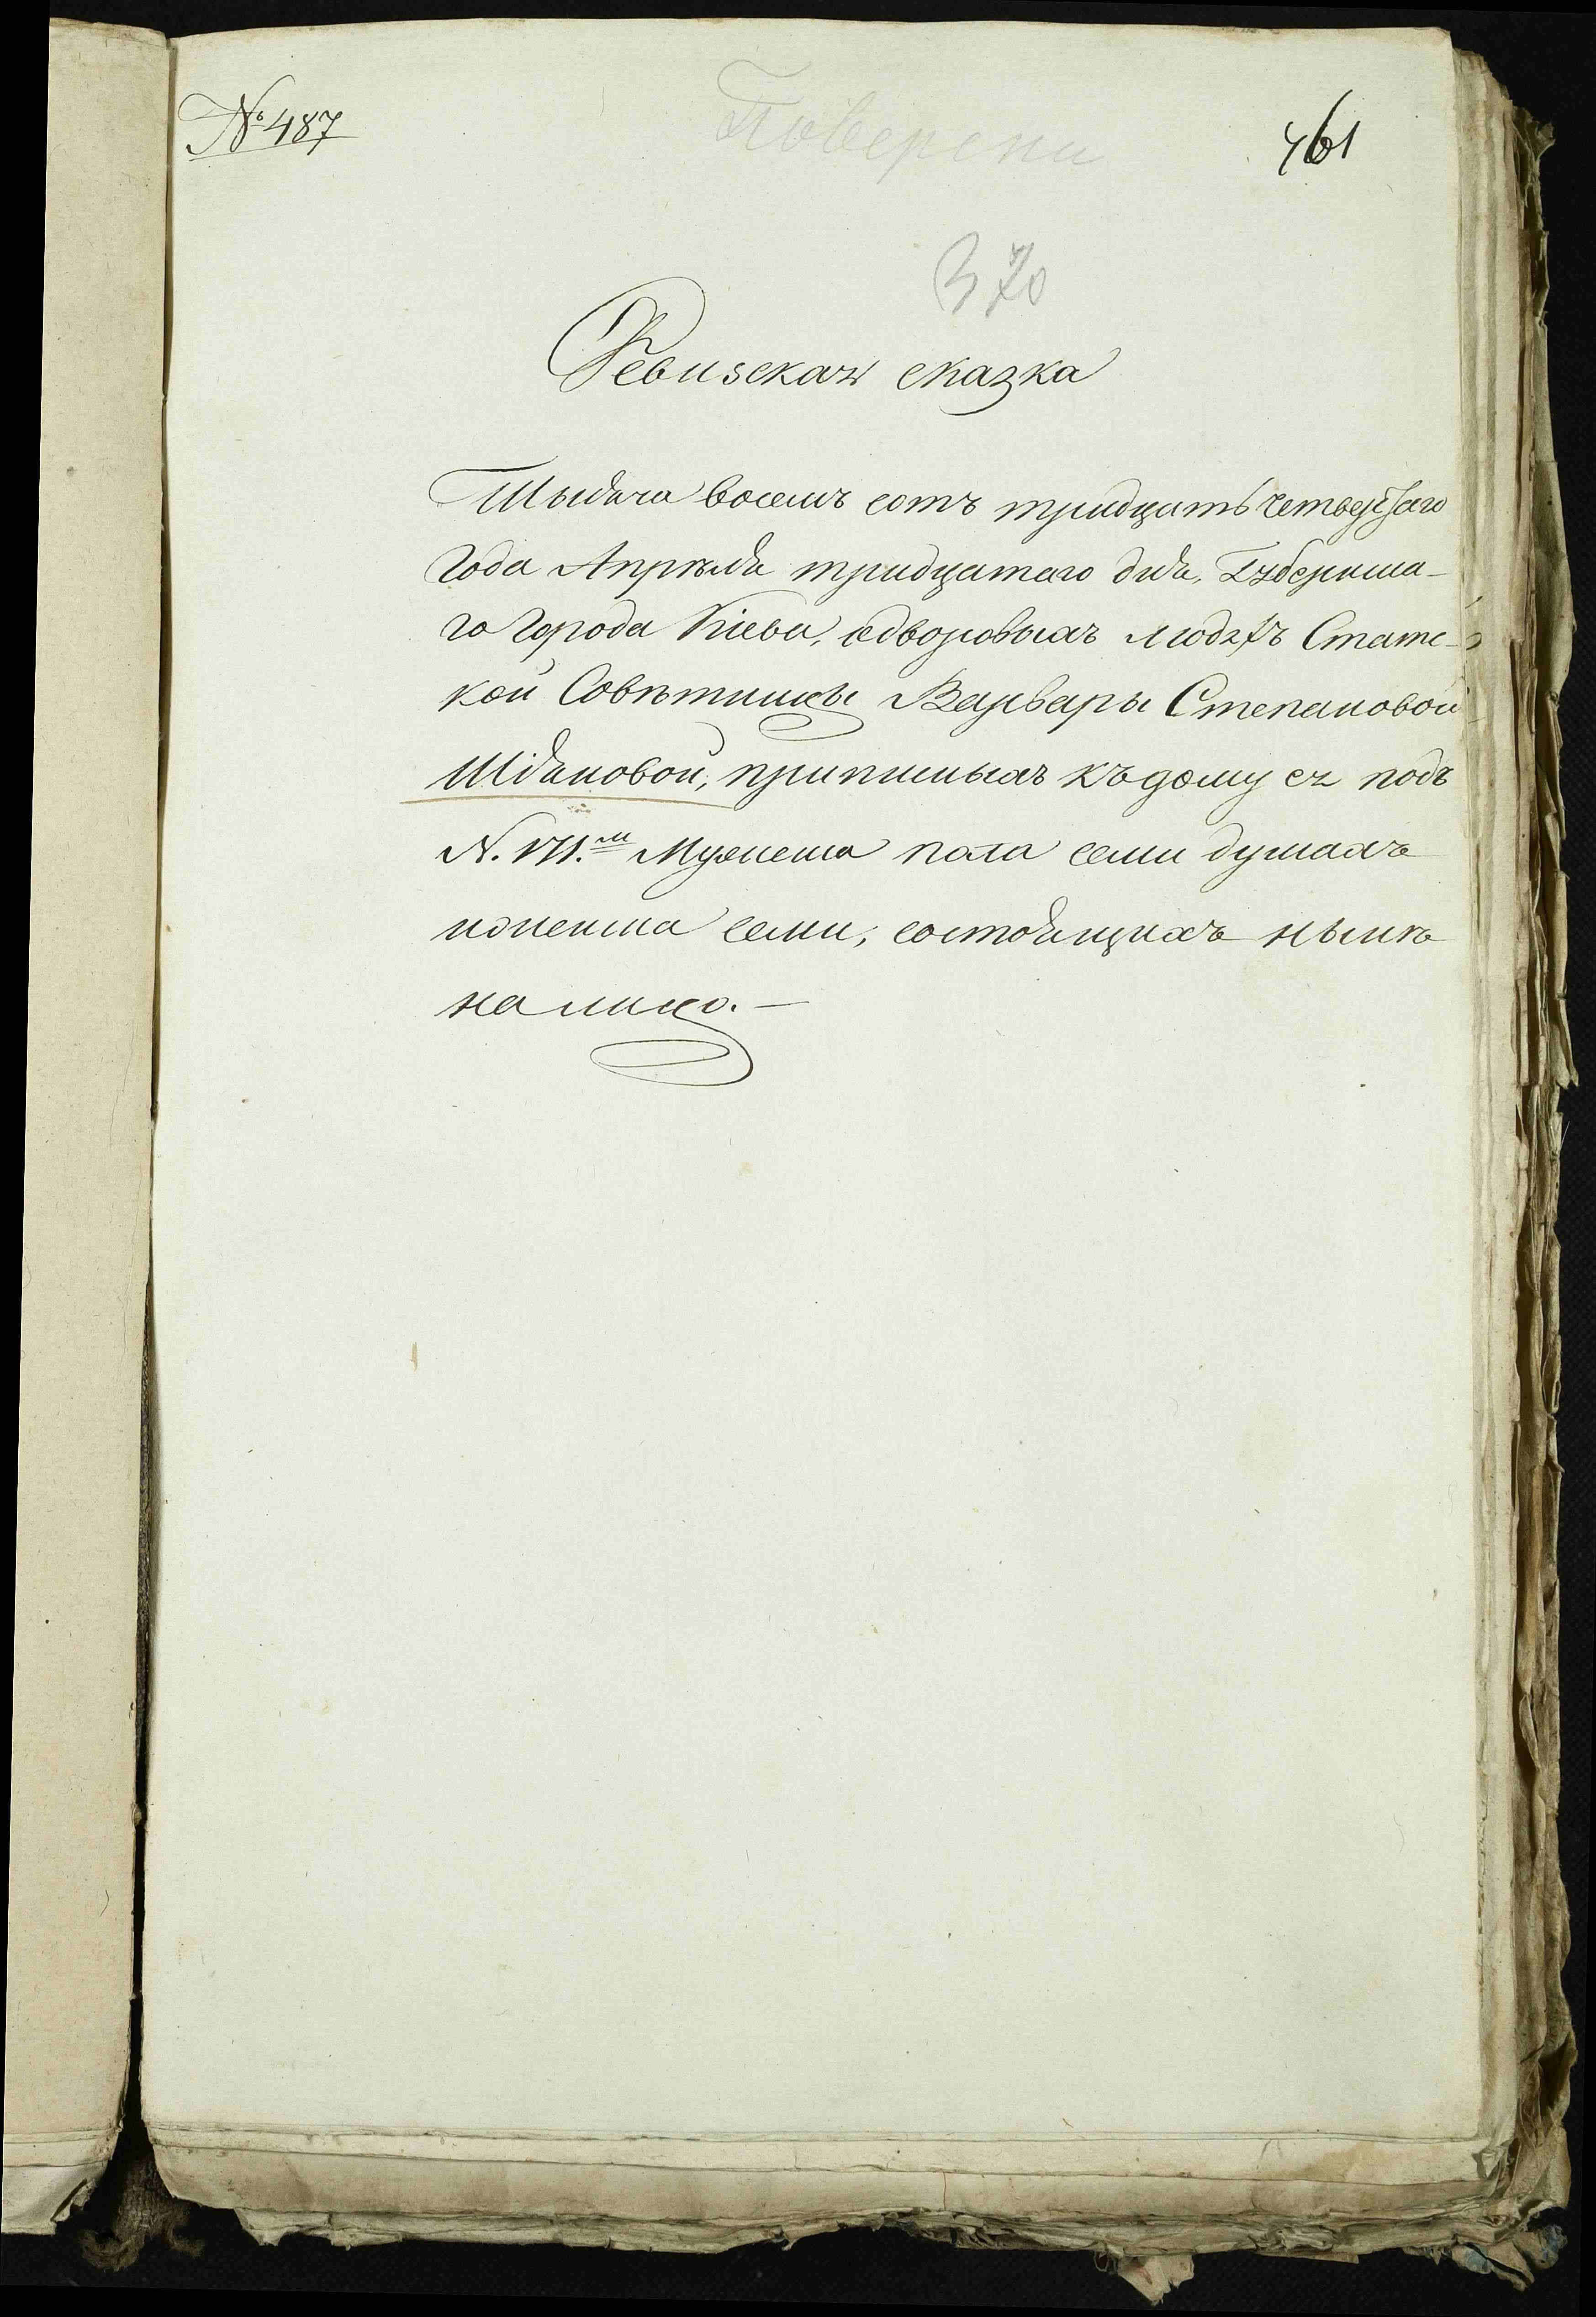 № 487
Поверени
461
370
Ревизская сказка
Тысяча восемъ сотъ тридцать четвертаго
года Апрѣля тридцатаго дня, Губернска-
го города Кіева, одворовыхъ людяхъ Статс-
кой Совѣтницы Варвары Степановой
приписныхъ къ дому ея подъ
N. 171.м Мужеска пола семи душахъ
иженска семи, состоящихъ нынѣ
на лицо.—